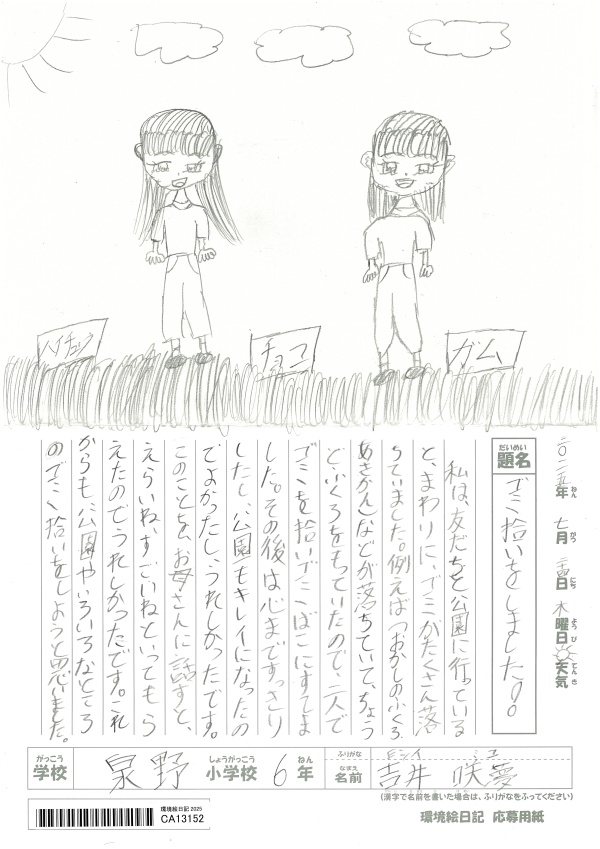 ハイチュウ
チョコ
ガム
二〇二五年 七月 二四日 木曜日 天気
ねん がつ にち ようび てんき
だいめい
題名
ゴミ拾いをしました!!
私は、友だちと公園に行っている
と、まわりに、ゴミがたくさん落
ちていました。例えば(おかしのふくろ、
あきかん)などが落ちていて、ちょう
どふくろをもっていたので、二人で
ゴミを拾いゴミばこにすてま
した。その後は心まですっきり
したし、公園もキレイになったの
でよかったし、うれしかったです。
このことを、お母さんに話すと、
えらいね、すごいねといってもら
えたのでうれしかったです。これ
からも、公園やいろいろなところ
のゴミ拾いをしようと思いました。
がっこう
学校
泉野
しょうがっこう
小学校
6
ねん
年
ふりがな
なまえ
名前
ヨシイ
吉井 咲愛
(漢字で名前を書いた場合は、ふりがなをふってください)
環境絵日記 2025
CA13152
環境絵日記 応募用紙